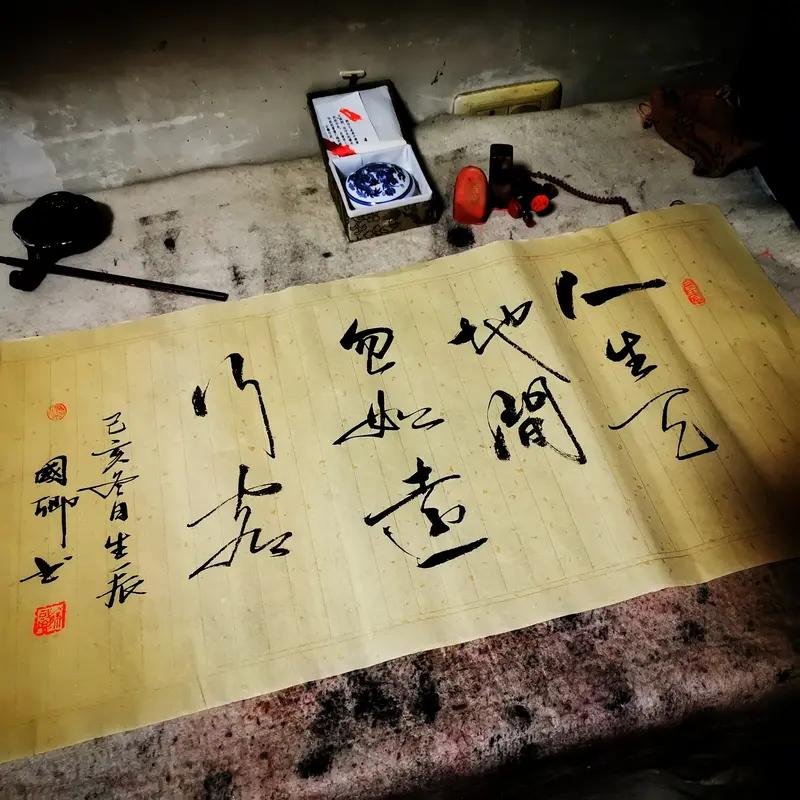 人生天
地間
忽如遠
行客
己亥冬日生
國卿书